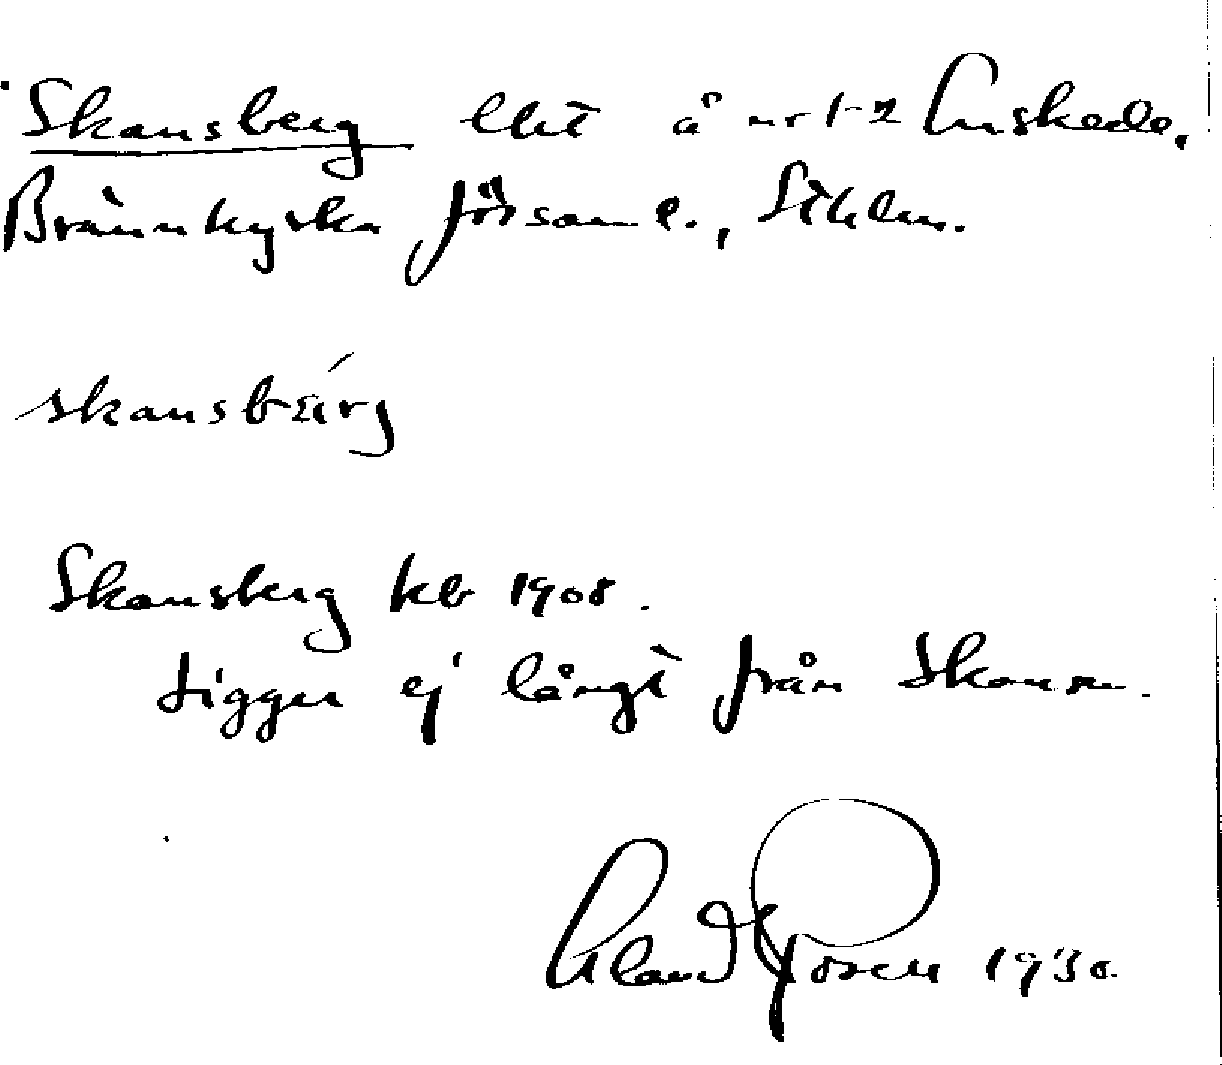 Skansberg lht å nr 1-2 Enskede,
Brännkyrka församl., Sthlm.
skansbärg
Skansberg kb 1908.
Ligger ej långt från Skansen.
Rosén 1930.